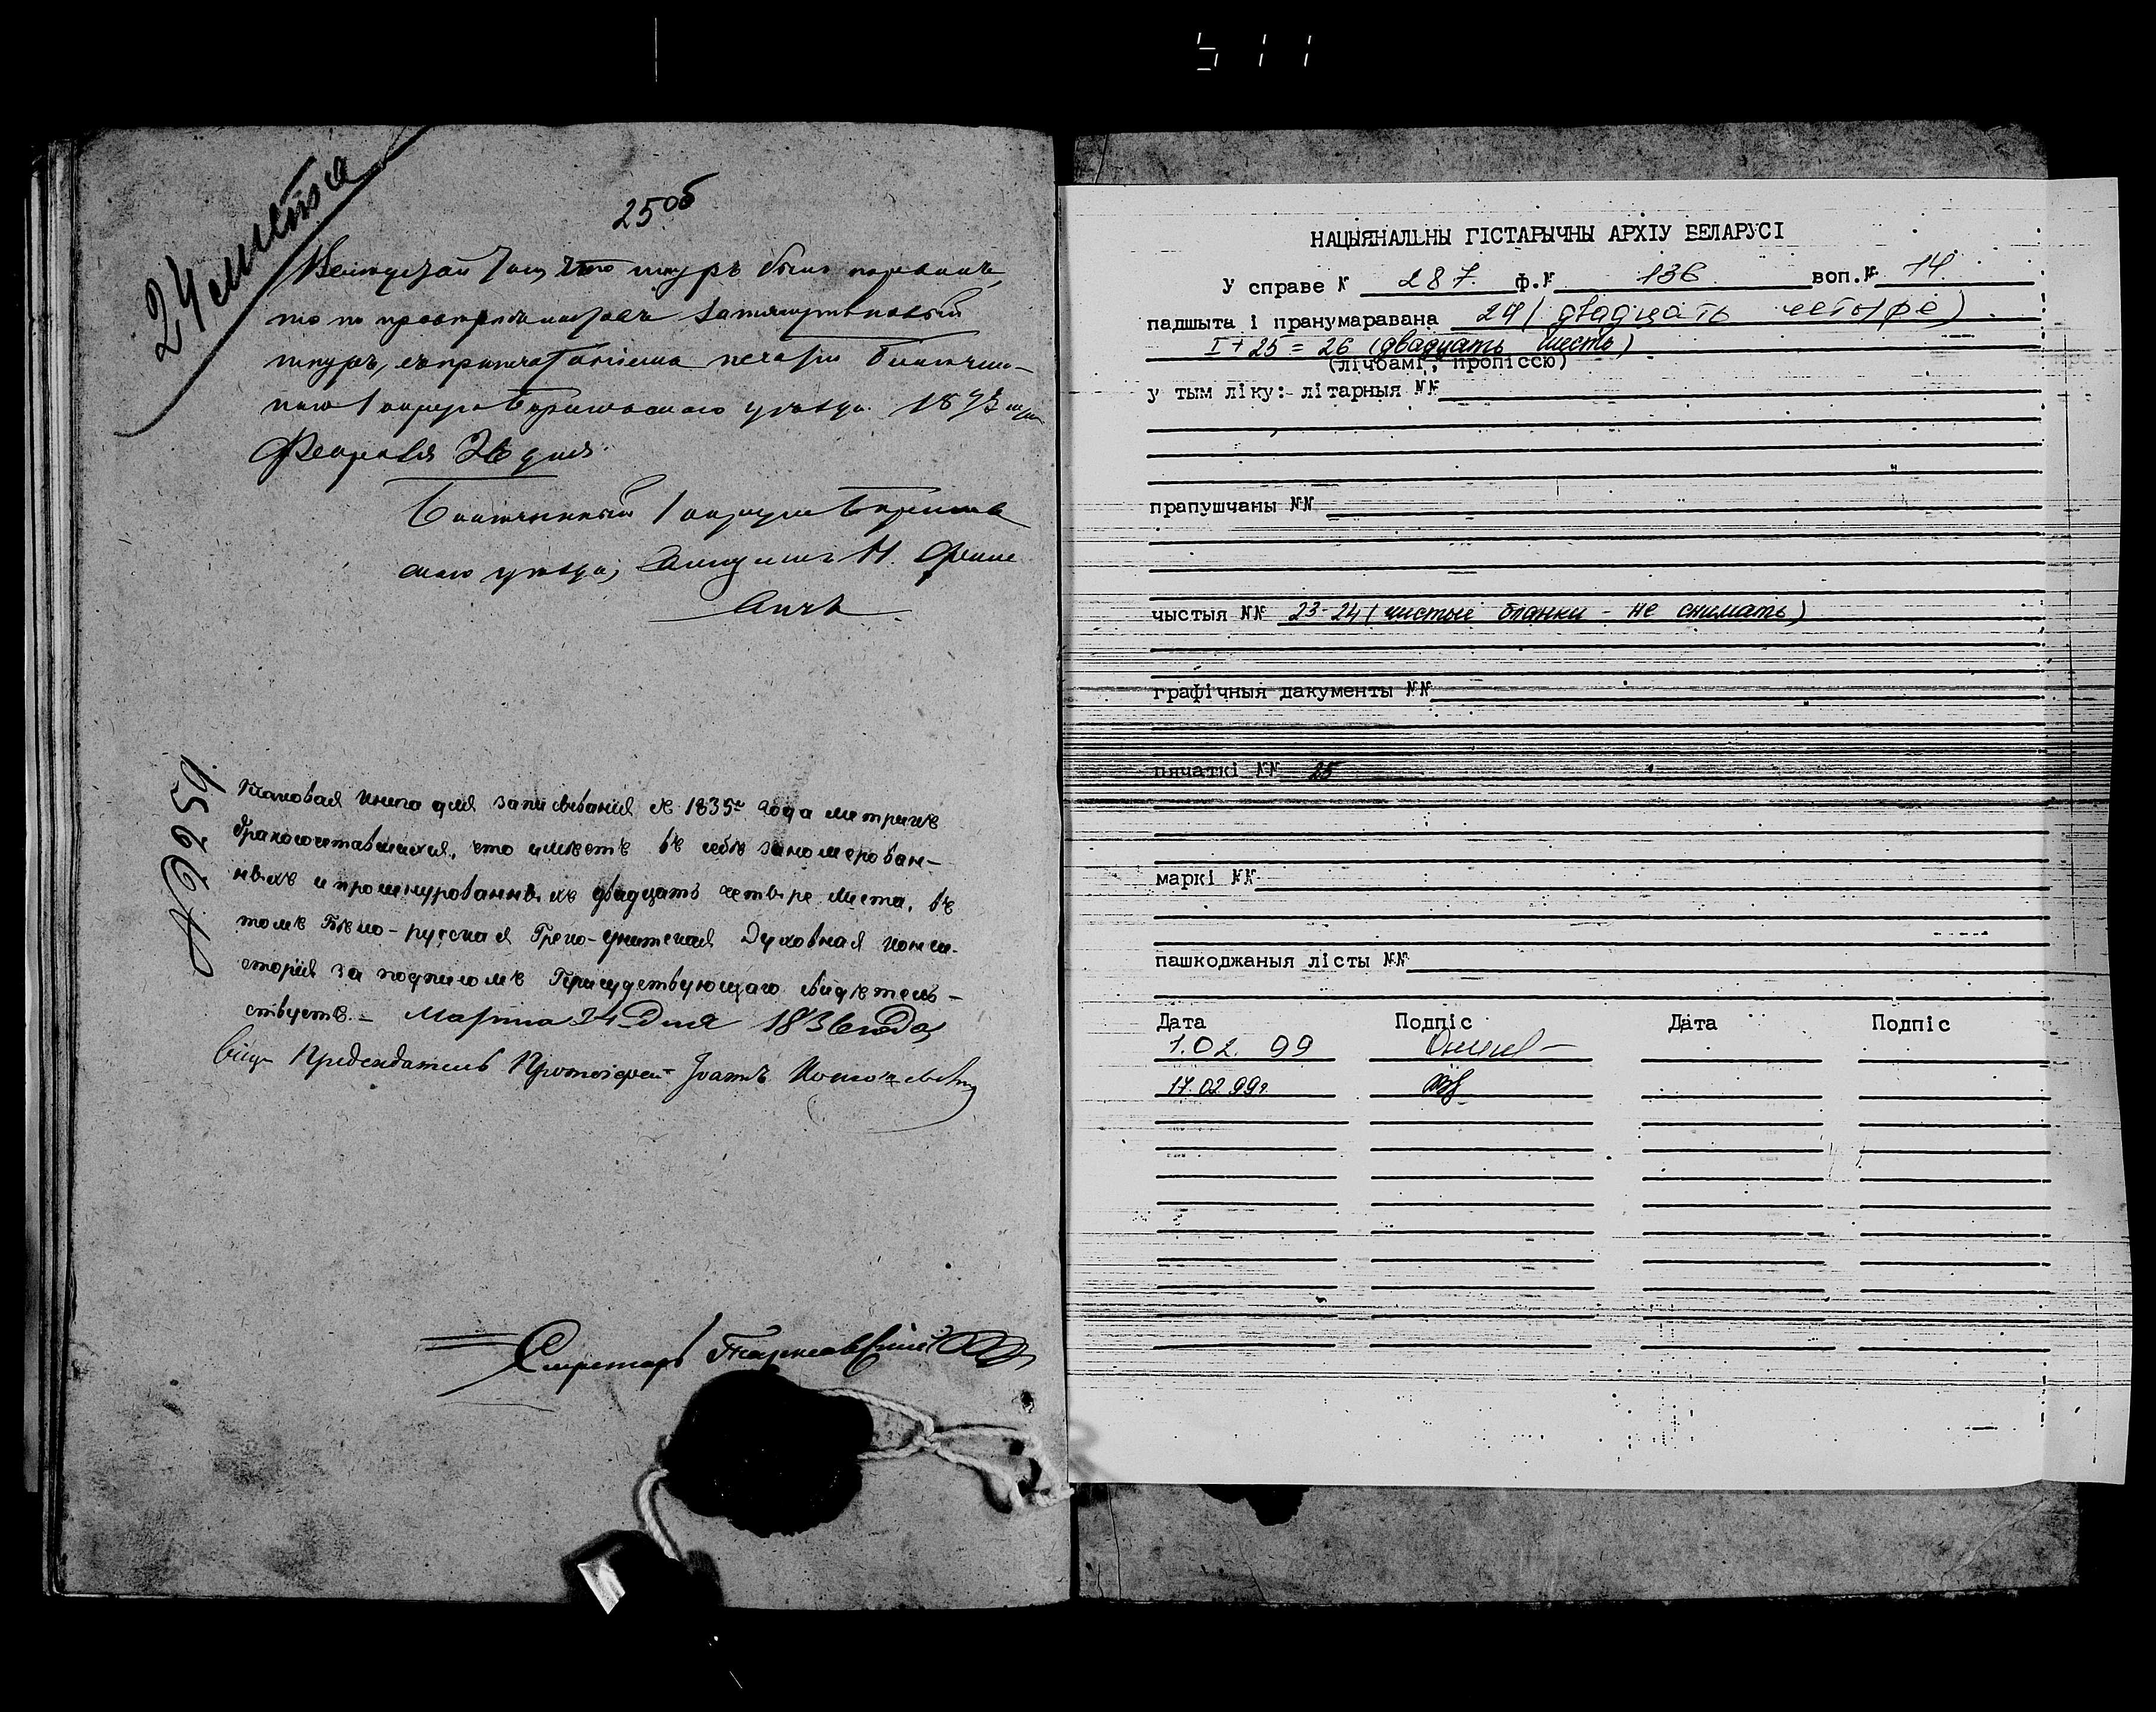 511
24 листа
25 об
что шнуръ былъ порванъ,
шнуръ, съ печати Благочин-
наго 1 округа Борисовскаго уѣзда. 18
Февраля 26 дня
Благочинный 1 округа Борисов
скаго уѣзда, Священникъ Н.
Таковая книга для записыванія съ 1835го года метрикъ
бракосочетавшихся, что имѣетъ въ себѣ занумерован-
ныхъ и прошнурованныхъ двадцать четыре листа, въ
томъ Бѣло-русская Греко-Унитская Духовная Конси-
сторія за подписомъ Присудствующаго свидѣтель-
ствуетъ. – Марта 24 Дня 1836 года
Вице Предсѣдатель Протоіерей Іоаннъ
Секретарь
НАЦЫЯНАЛЬНЫ ГІСТАРЫЧНЫ АРХІУ БЕЛАРУСІ
У справе № 287. ф.№ 136 воп.№ 14.
падшыта і пранумаравана 24 (двадцать четыре)
I + 25 = 26 (двадцать шесть)
(лічбамі, пропіссю)
у тым ліку: літарныя №№
прапушчаны №№
чыстыя №№ 23-24 (чистые бланки - не снимать)
графічныя дакументы №№
пячаткі №№ 25
маркі №№
пашкоджаныя лісты №№
Дата Подпіс Дата Подпіс
1.02. 99
17.02.99г.